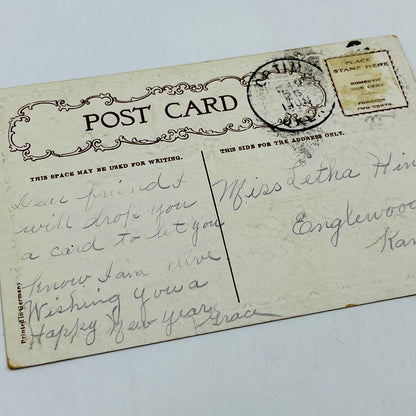 PLACE
STAMP HERE
DOMESTIC
ONE CENT
FOREIGN
TWO CENTS
POST CARD
THIS SPACE MAY BE USED FOR WRITING.
THIS SIDE FOR THE ADDRESS ONLY.
Dear friend I
will drop you
a card to let you
know I am alive
Wishing you a
Happy New Year
Grace
Miss Letha Hin
Englewood
Kan
Printed in Germany